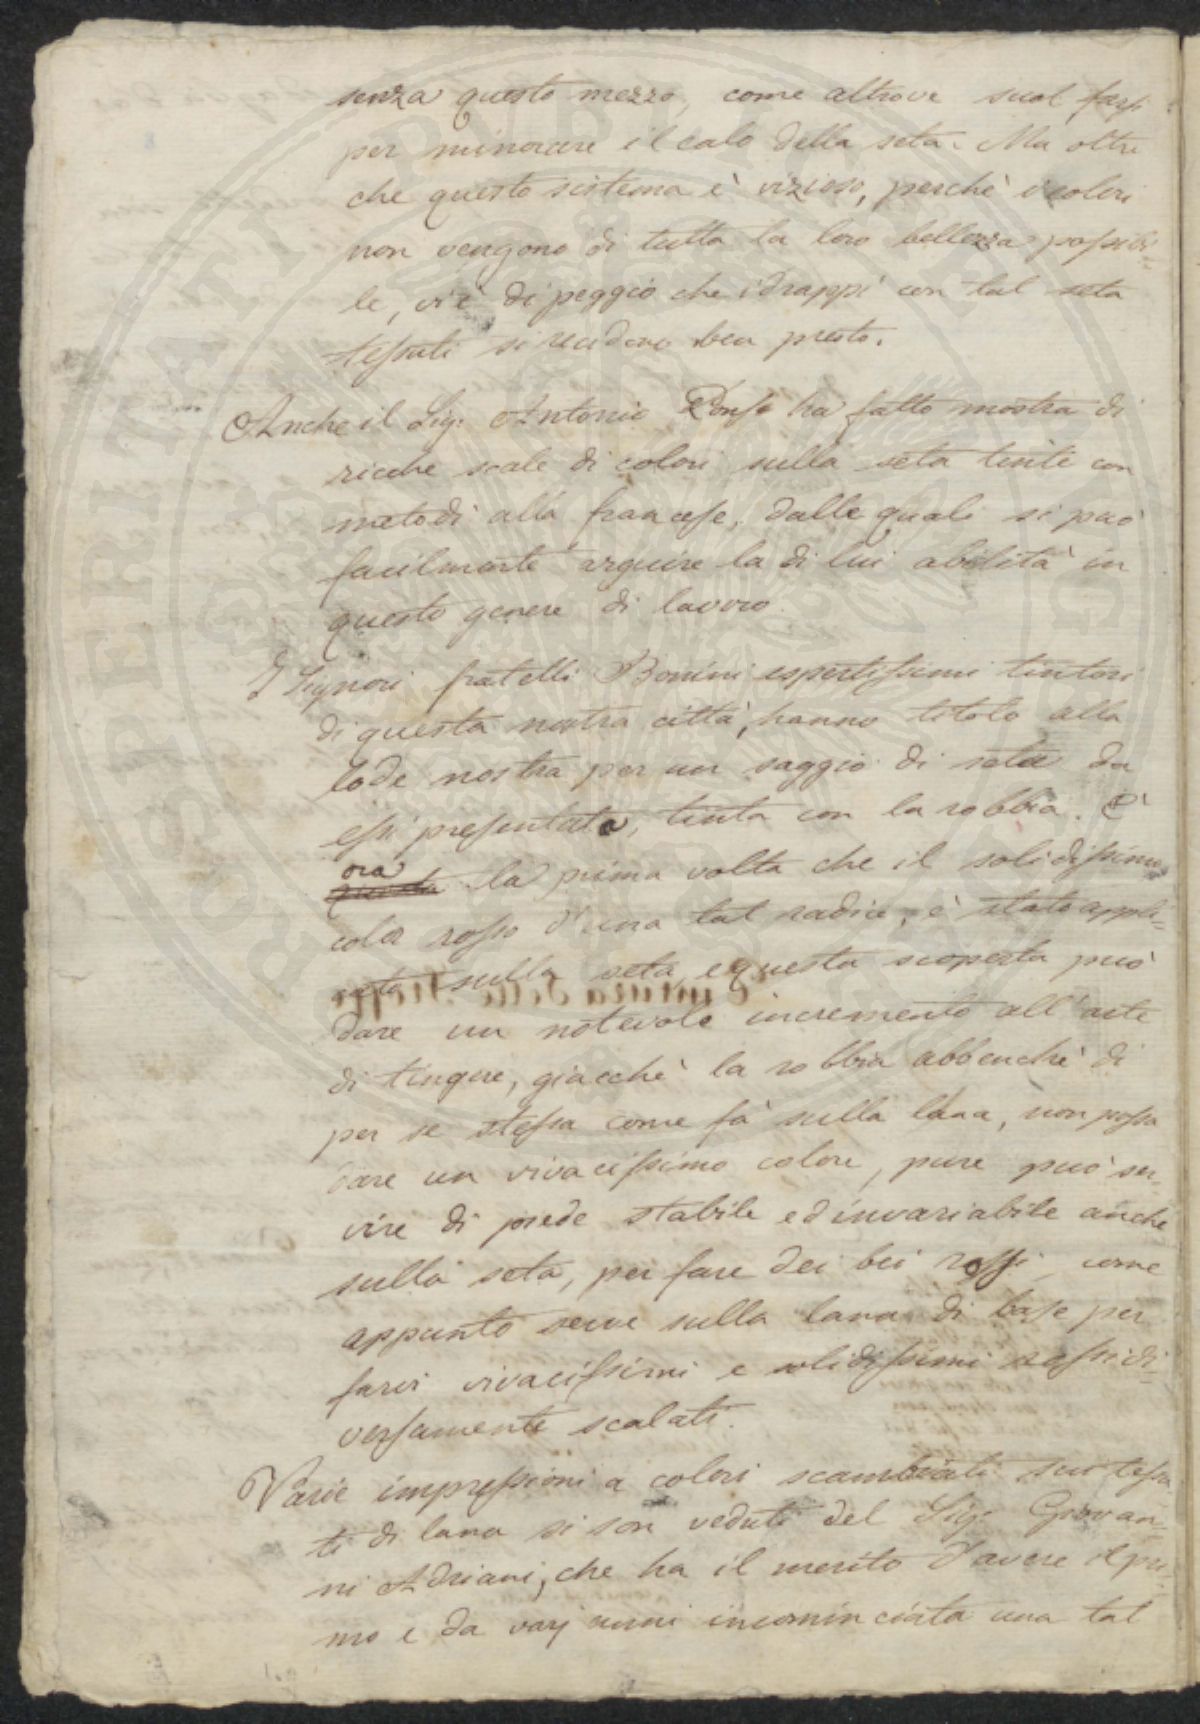 senza questo mezzo, come altrove suol farsi
per minorare il calo della seta. Ma oltre
che questo sistema è vizioso, perchè i colori
non vengono di tutta la loro bellezza possibi-
le, vi è di peggio che i drappi con tal seta
tessuti si recidono ben presto.
Anche il Sig. Antonio ha fatto mostra di
ricche scale di colori sulla seta tinte con
metodi alla francese, dalle quali si può
facilmente arguire la di lui abilità in
questo genere di lavoro.
I Signori fratelli Bonini espertissimi tintori
di questa nostra città, hanno titolo alla
lode nostra per un saggio di seta da
essi presentato, tinta con la robbia. È
ora
questa la prima volta che il solidissimo
color rosso d'una tal radice, è stato appli-
cato sulla seta, e questa scoperta può
dare un notevole incremento all'arte
di tingere, giacchè la robbia abbenchè di
per se stessa come fà sulla lana, non possa
dare un vivacissimo colore, pure può ser-
vire di piede stabile ed invariabile anche
sulla seta, per fare dei bei rossi, come
appunto serve sulla lana di base per
farvi vivacissimi e solidissimi rossi di-
versamente scalati.
Varie impressioni a colori scambiati sui tessu
ti di lana si son vedute del Sig. Giovan-
ni Adriani, che ha il merito d'avere il pri-
mo e da varj anni incominciata una tal